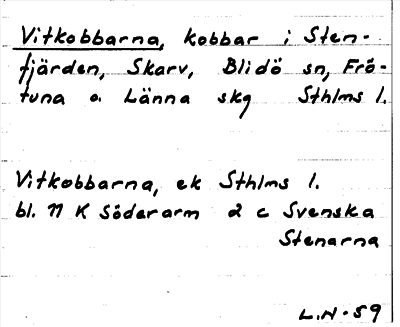 Vitkobbarna, kobbar i Sten-
fjärden, Skarv, Blidö sn, Frö-
tuna o. Länna skg Sthlms l.
Vitkobbarna, ek Sthlms l.
bl. 11 K Söderarm 2 c Svenska
Stenarna
L.N-59